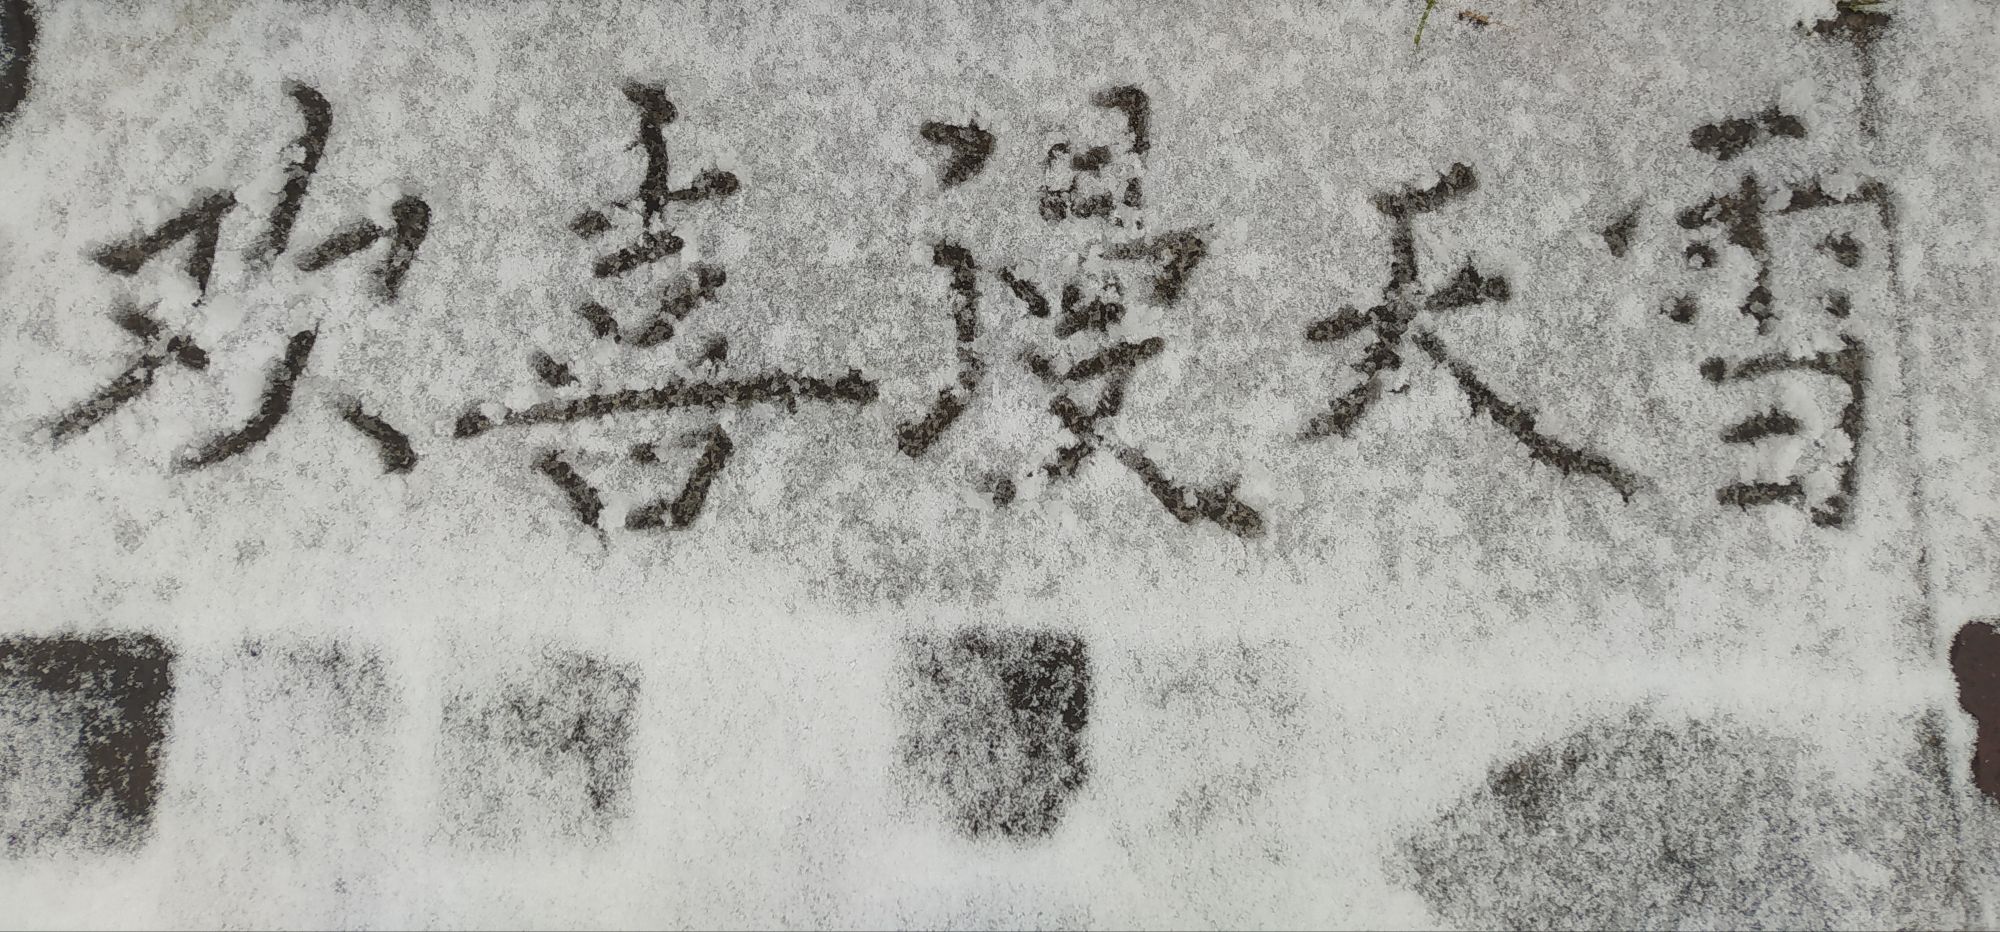 欢喜漫天雪